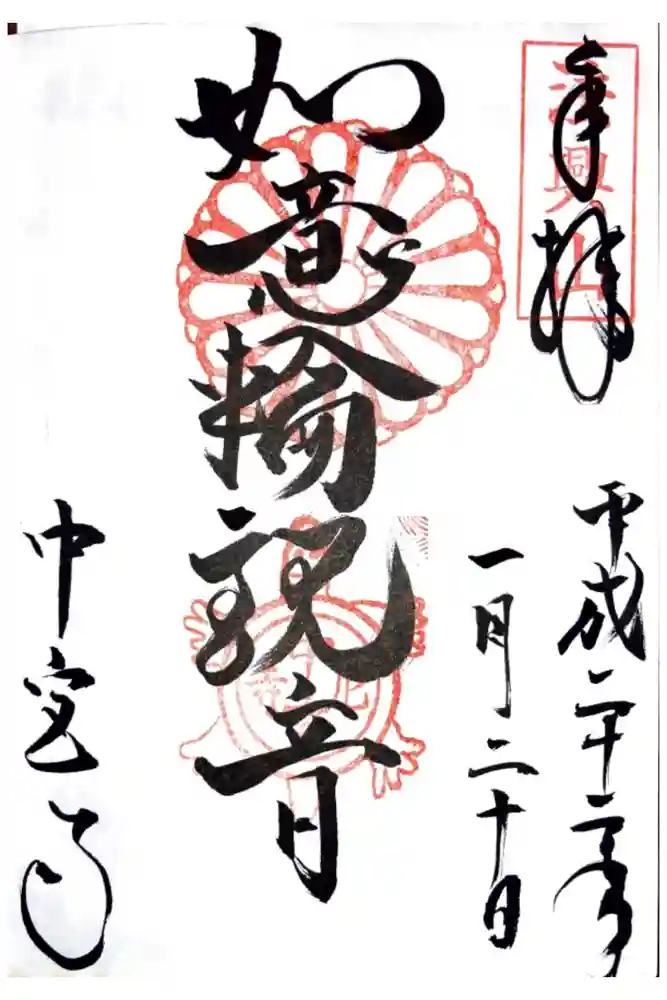 奉拝
法興山
平成二十三年
一月二十日
如意輪観音
中宮寺